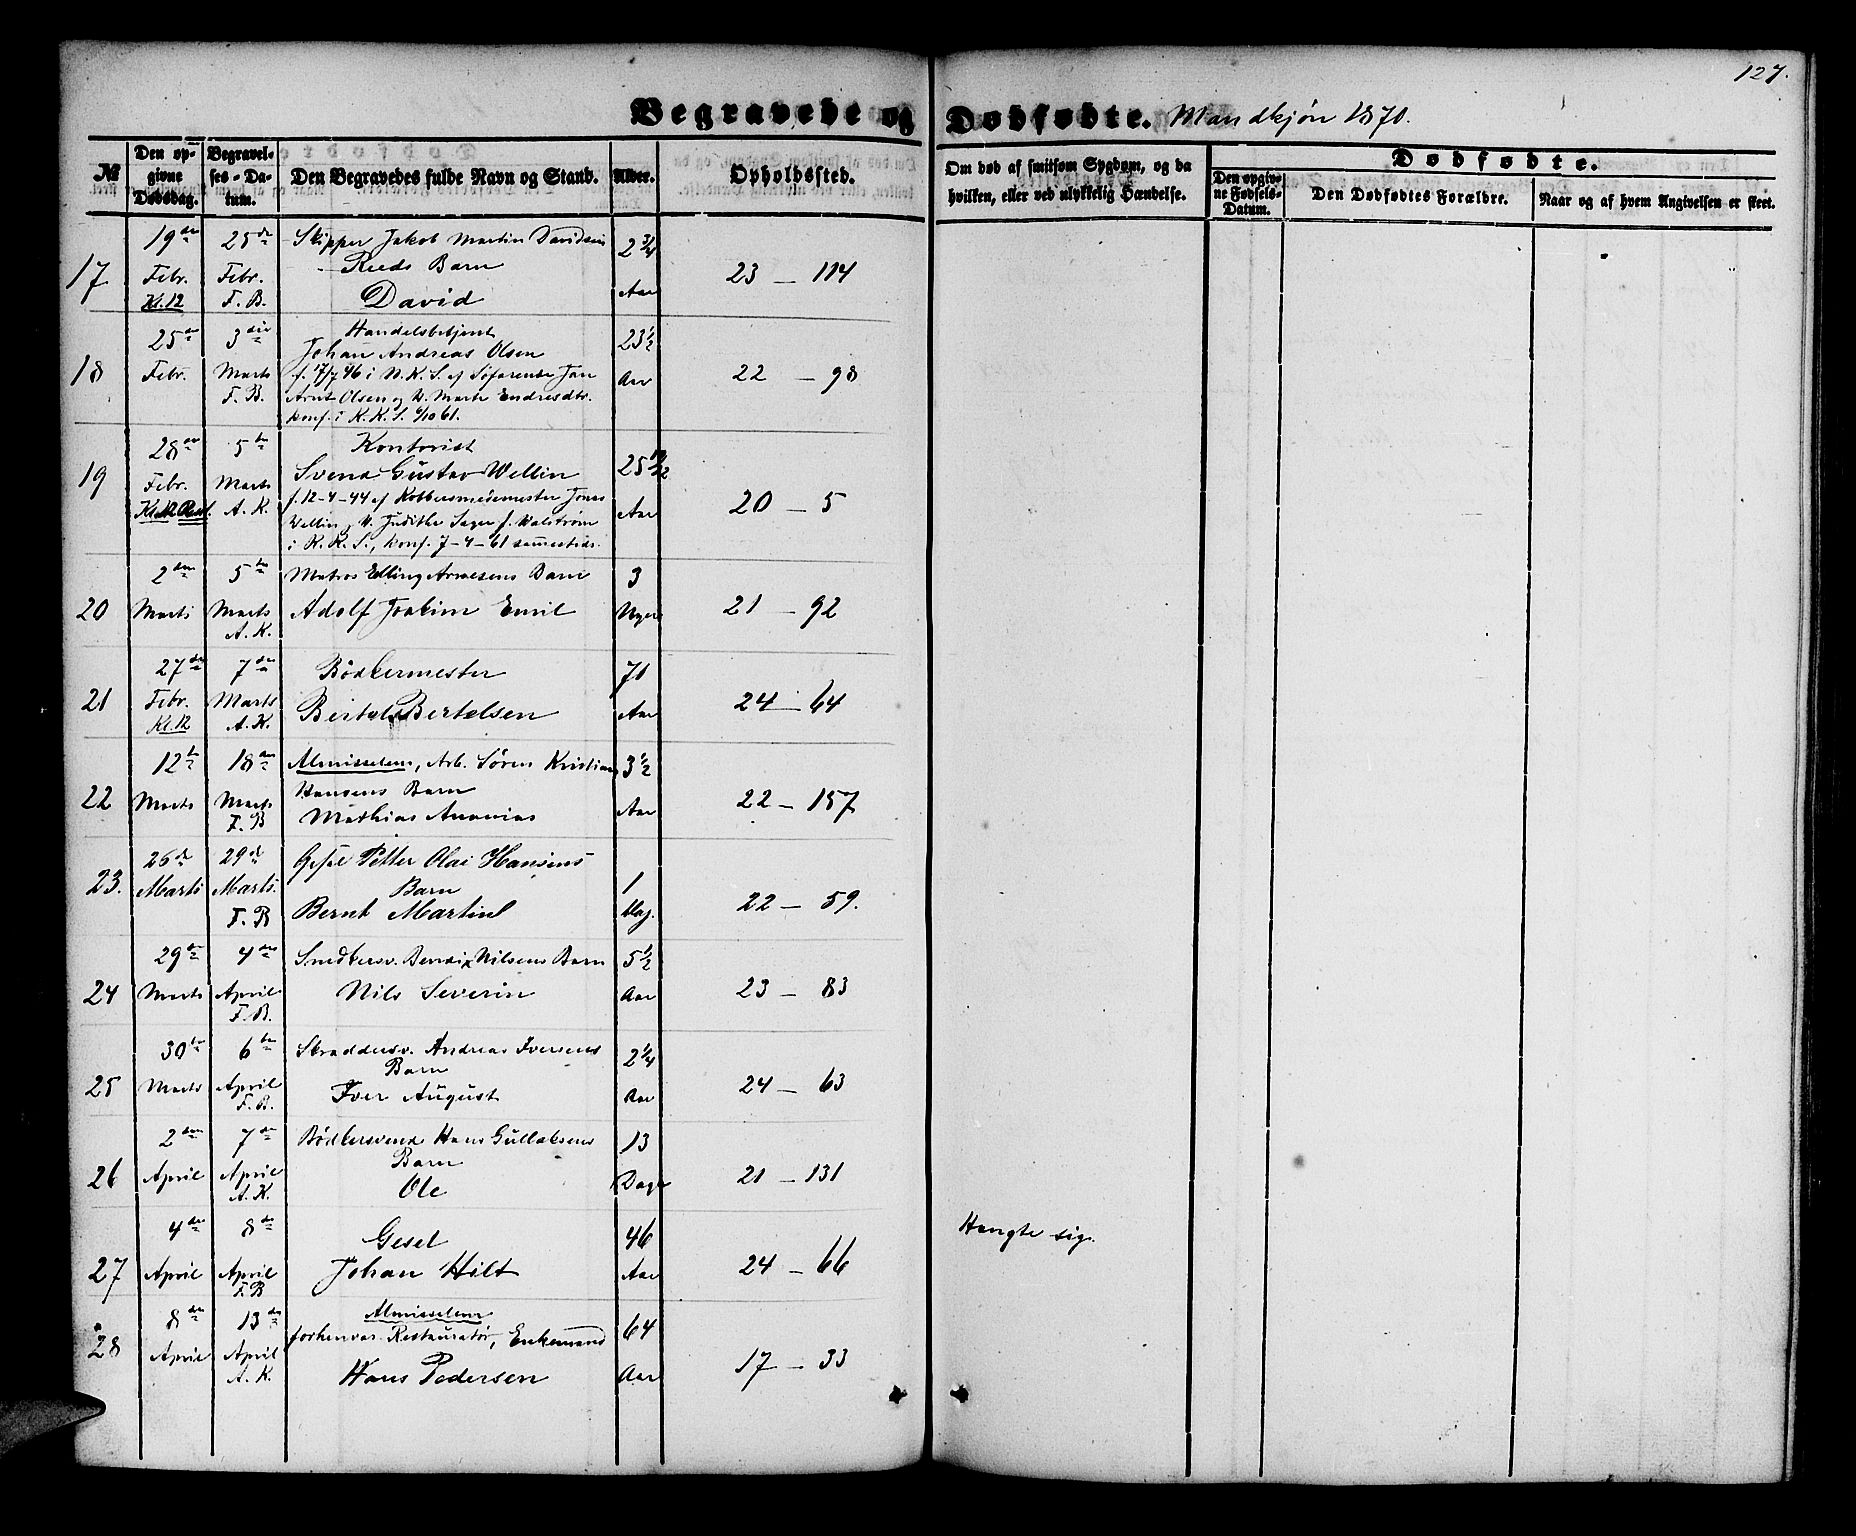 127.
Begravede og Dødfødte. Mandkjøn 1870.
№
Den opgivne Dødsdag.
Begravelses-Datum.
Den Begravedes fulde Navn og Stand.
Alder.
Opholdssted.
Om død af smitsom Sygdom, og da hvilken, eller ved ulykkelig Hændelse.
Dødfødte.
Den opgivne Fødsels-Datum.
Den Dødfødtes Forældre.
Naar og af hvem Angivelsen er skeet.
19de 25de Skipper Jakob Martin Davidsen 2 3/4
17 Febr. Febr. Reeds Barn 23 – 114
Kl. 12 F. B. David Aar
25de 3die Handelsbetjent 23 1/2
Johan Andreas Olsen
18 Febr. Marts f. 17/7 46 i N. K. S. af Søfarende Jan Aar 22 – 98
F. B. Arnt Olsen og H. Marte Endresdtr.
konf. i K. K. S. 6/10 61.
28de 5te Kontorist
19 Febr. Marts Svend Gustav Wellin 25 10/12
A. K. f. 12-4-44 af Kobbersmedemester Jonas Aar 20 – 5
Wellin, H. Judithe Sager f. Walstrøm
i K. K. S., konf. 7-4-61 sammesteds.
2den 5te Matros Elling Arnesens Barn 3
20 Marts Marts Adolf Joakim Emil Uger 21 – 92
A. K.
27de 7de Bødkermester 71
21 Febr. Marts Bertel Bertelsen Aar 24 – 64
Kl. 12 A. K.
12te 18de Almisselem, Arb. Søren Kristian 3 1/2
22 Marts Marts Hansens Barn Aar 22 – 157
F. B Mathias Ananias
26d 29d Gesel Petter Olai Hansens
23. Marts Marts. Barn 1
F. B Bernt Martinl Dag. 22 – 59.
29de 4de Snedkersv. Bendix Nilsens Barn 5 1/2
24 Marts April Nils Severin Aar 23 – 83
F. B.
30te 6te Skraddersv. Andreas Iversens 2 1/4
25 Marts April Barn 24 – 63
F. B. Iver August Aar
2den 7de Bødkersvend Hans Gullaksens 13
26 April April Barn Dage 21 – 131
A. K. Ole
4de 8de Gesel 46 Hengte sig.
27 April April Johan Hilt Aar 24 – 66
F. B
8de 13de Almisselem 64
28 April April forhenvær. Restauratør, Enkemand
A. K. Hans Pedersen Aar 17 – 33